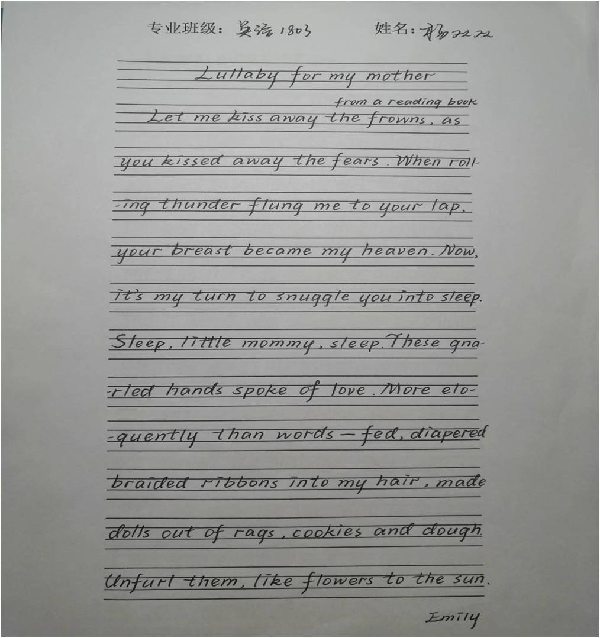 专业班级: 英语1803 姓名: 杨
Lullaby for my mother
from a reading book
Let me kiss away the frowns, as
you kissed away the fears. When roll-
-ing thunder flung me to your lap,
your breast became my heaven. Now,
it's my turn to snuggle you into sleep.
Sleep, little mommy, sleep. These gna-
-rled hands spoke of love. More elo-
-quently than words — fed, diapered
braided ribbons into my hair, made
dolls out of rags, cookies and dough.
Unfurl them, like flowers to the sun.
Emily